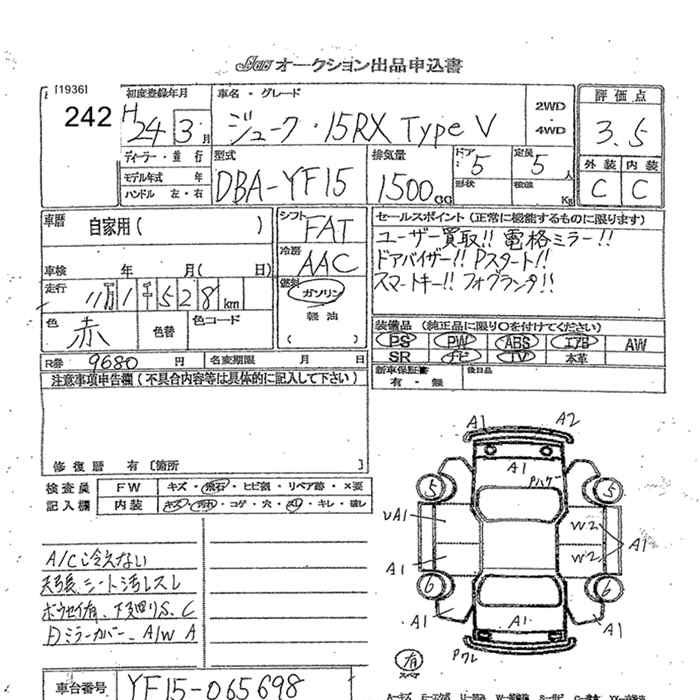 オークション出品申込書
[1936]
242
初度登録年月
H24 3月
車名・グレード
ジューク・15RX Type V
2WD
・
4WD
評価点
3.5
外装 内装
C C
ディーラー・並行
モデル年式 年
ハンドル 左・右
型式
DBA-YF15
排気量
1500CC
ドア
5
形状
定員
5人
積載
Kg
車歴
自家用( )
シフト
FAT
冷房
AAC
車検 年 月( 日)
走行
11万1千528km
燃料
ガソリン
軽油
( )
色
赤
色替
色コード
セールスポイント(正常に機能するものに限ります)
ユーザー買取!! 電格ミラー!!
ドアバイザー!! Pスタート!!
スマートキー!! フォグランプ!!
装備品(純正品に限り○を付けてください)
PS PW ABS エアB AW
SR ナビ TV 本革
新車保証書
有・無
後日品
R券 9680円
名変期限 月 日
注意事項申告欄(不具合内容等は具体的に記入して下さい)
修復歴 有〔箇所 〕
検査員
記入欄
FW キズ・飛石・ヒビ割・リペア跡・×要
内装 キズ・汚れ・コゲ・穴・スレ・キレ・破レ
A/C冷えない
天張、シート汚レスレ
ボウセイ有、下廻りS、C
Dミラーカバー、A1W A
車台番号
YF15-065698
A1 A2
A1
Pハゲ
5 5
UA1
W2
W2
A1
A1
6 6
A1
A1
A1
Pワレ
有
スペア